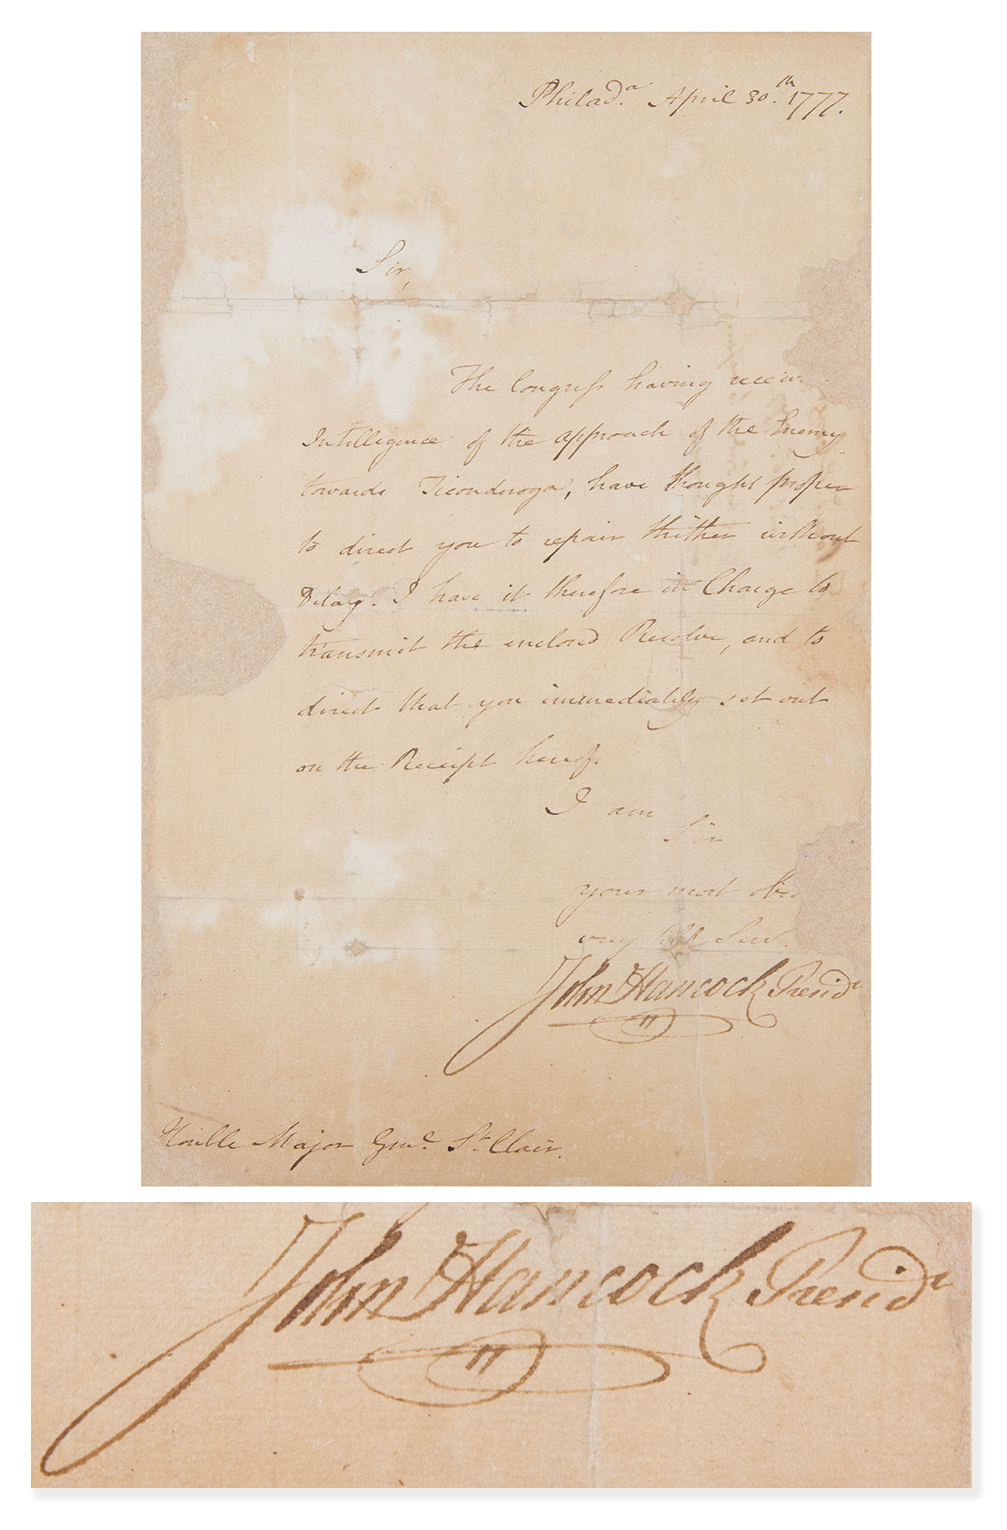 Philad.ᵃ April 30.ᵗʰ 1777.
Sir,
The Congress having receiv
Intelligence of the approach of the Enemy
towards Ticonderoga, have thought proper
to direct you to repair thither without
Delay. I have it therefore in Charge to
transmit the enclosed Resolve, and to
direct that you immediately set out
on the Receipt hereof.
I am
Sir
your most obed
very hble Serv.
John Hancock Presidᵗ
Honble Major Genˡ. Sᵗ. Clair.
John Hancock Presidᵗ